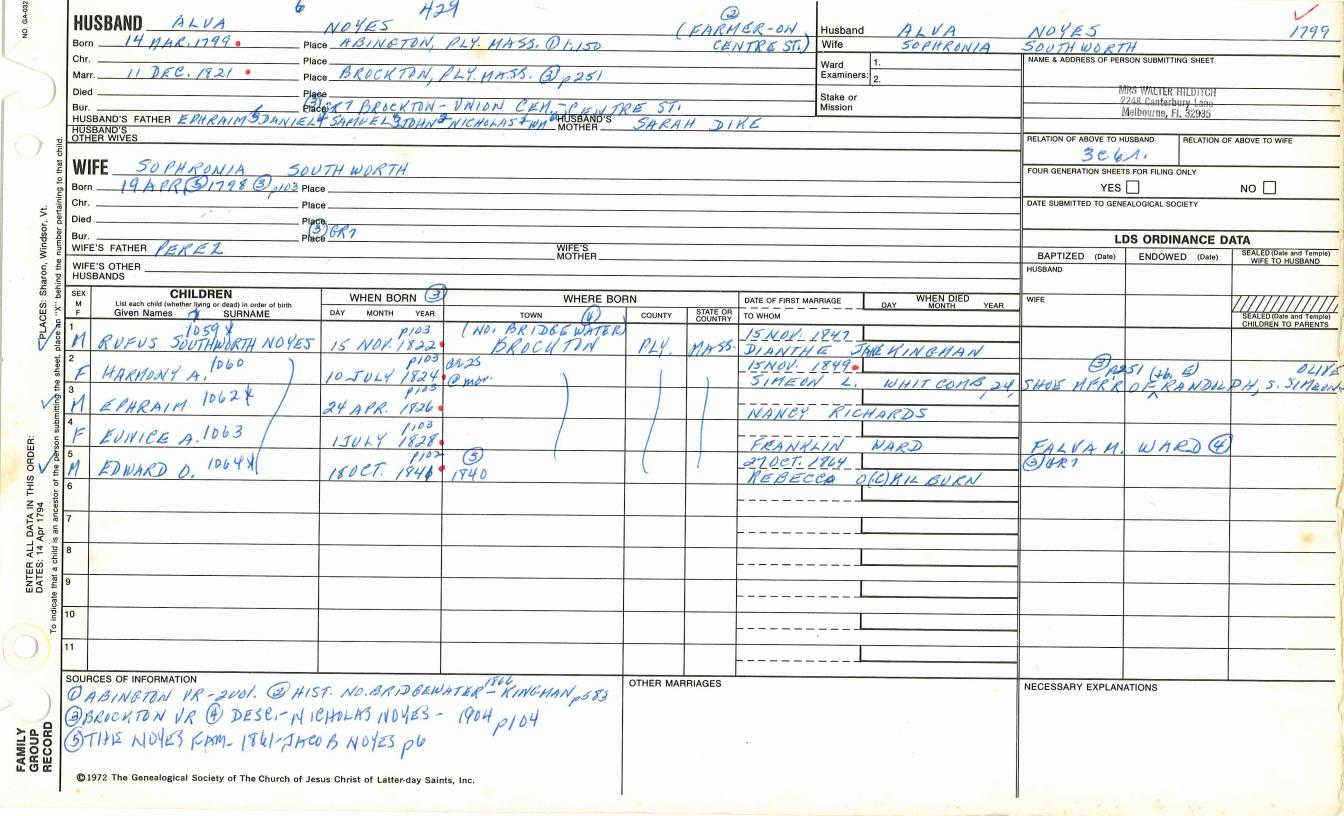 NO. GA-032
6 429
HUSBAND ALVA NOYES (FARMER-ON ②
Born 14 MAR. 1799 Place ABINGTON, PLY. MASS. ① 1:150 CENTRE ST.)
Chr. Place
Marr. 11 DEC. 1821 Place BROCKTON, PLY. MASS. ③ p251
Died Place
Bur. Place ③ GR7 BROCKTON-UNION CEM.-CENTRE ST.
HUSBAND'S FATHER EPHRAIM 6 DANIEL 5 SAMUEL 4 JOHN 3 NICHOLAS 2 WM HUSBAND'S MOTHER SARAH DIKE
HUSBAND'S OTHER WIVES
Husband ALVA NOYES 1799
Wife SOPHRONIA SOUTHWORTH
Ward Examiners: 1. 2.
Stake or Mission
NAME & ADDRESS OF PERSON SUBMITTING SHEET
MRS WALTER HILDITCH
2248 Canterbury Lane
Melbourne, Fl. 32935
RELATION OF ABOVE TO HUSBAND RELATION OF ABOVE TO WIFE
3c 6r.
FOUR GENERATION SHEETS FOR FILING ONLY
YES NO
DATE SUBMITTED TO GENEALOGICAL SOCIETY
WIFE SOPHRONIA SOUTHWORTH
Born 19 APR ③ 1798 ③ p103 Place
Chr. Place
Died Place
Bur. Place ③ GR7
WIFE'S FATHER PEREZ WIFE'S MOTHER
WIFE'S OTHER HUSBANDS
LDS ORDINANCE DATA
BAPTIZED (Date) ENDOWED (Date) SEALED (Date and Temple) WIFE TO HUSBAND
HUSBAND
WIFE
SEALED (Date and Temple) CHILDREN TO PARENTS
SEX M F CHILDREN WHEN BORN ③ WHERE BORN DATE OF FIRST MARRIAGE WHEN DIED
List each child (whether living or dead) in order of birth
Given Names SURNAME DAY MONTH YEAR TOWN ④ COUNTY STATE OR COUNTRY TO WHOM DAY MONTH YEAR
1 1059 X p103 (NO. BRIDGEWATER) 15 NOV. 1847
M RUFUS SOUTHWORTH NOYES 15 NOV. 1822 BROCKTON PLY. MASS. DIANTHE JANE KINGMAN
2 1060 p103 GR25 15 NOV. 1849 ③ p251 (+b. E) OLIVE
F HARMONY A. 10 JULY 1824 @ mar. SIMEON L. WHITCOMB, 24, SHOE MFR'R OF RANDOLPH, S. SIMEON
3 p103
M EPHRAIM 1062 X 24 APR. 1826 NANCY RICHARDS
4 p103
F EUNICE A. 1063 1 JULY 1828 FRANKLIN WARD FALVA M. WARD ④
5 p102 ⑤ 27 OCT. 1864 ③ GR7
M EDWARD O. 1064 X 18 OCT. 1841 1840 REBECCA O(C) KILBURN
6
7
8
9
10
11
SOURCES OF INFORMATION
① ABINGTON VR-2vol. ② HIST. NO. BRIDGEWATER 1866-KINGMAN p583
③ BROCKTON VR ④ DESC.-NICHOLAS NOYES- 1904 p104
⑤ THE NOYES FAM- 1861-JACOB NOYES p6
OTHER MARRIAGES
NECESSARY EXPLANATIONS
©1972 The Genealogical Society of The Church of Jesus Christ of Latter-day Saints, Inc.
FAMILY GROUP RECORD
ENTER ALL DATA IN THIS ORDER:
DATES: 14 Apr 1794 PLACES: Sharon, Windsor, Vt.
To indicate that a child is an ancestor of the person submitting the sheet, place an "X" behind the number pertaining to that child.